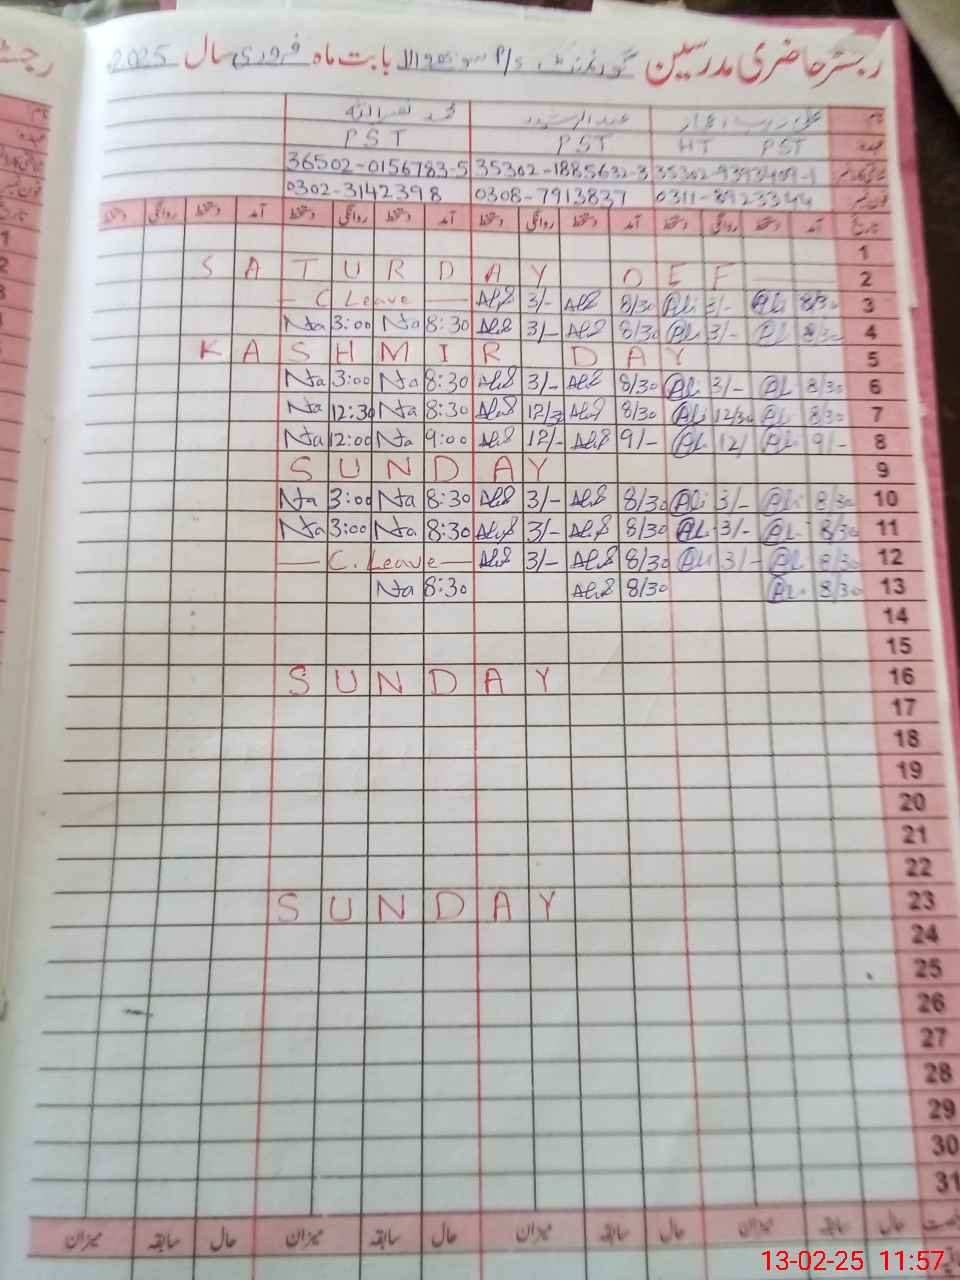 رجسٹر حاضری مدرسین گورنمنٹ P/S بابت ماہ فروری سال 2025
نام محمد نصراللہ عبدالرشید
عہدہ PST PST HT PST
36502-0156783-5 35302-1885632-3
0302-3142398 0308-7913837
تاریخ آمد دستخط روانگی دستخط آمد دستخط روانگی دستخط آمد دستخط روانگی دستخط آمد دستخط روانگی دستخط
1
SATURDAY OFF 2
C Leave Al.8 3/- Al.8 8/30 Ali 3/- Ali 8/30 3
Na 3:00 Na 8:30 Al.8 3/- Al.8 8/30 Ali 3/- Ali 8/30 4
KASHMIR DAY 5
Na 3:00 Na 8:30 Al.8 3/- Al.8 8/30 Ali 3/- Ali 8/30 6
Na 12:30 Na 8:30 Al.8 12/3 Al.8 8/30 Ali 12/30 Ali 8/30 7
Na 12:00 Na 9:00 Al.8 12/- Al.8 9/- Ali 12/ Ali 9/- 8
SUNDAY 9
Na 3:00 Na 8:30 Al.8 3/- Al.8 8/30 Ali 3/- Ali 8/30 10
Na 3:00 Na 8:30 Al.8 3/- Al.8 8/30 Ali 3/- Ali 8/30 11
C. Leave Al.8 3/- Al.8 8/30 Ali 3/- Ali 8/30 12
Na 8:30 Al.8 8/30 Ali 8/30 13
14
15
SUNDAY 16
17
18
19
20
21
22
SUNDAY 23
24
25
26
27
28
29
30
31
حال سابقہ میزان حال سابقہ میزان حال سابقہ میزان حال سابقہ میزان
13-02-25 11:57